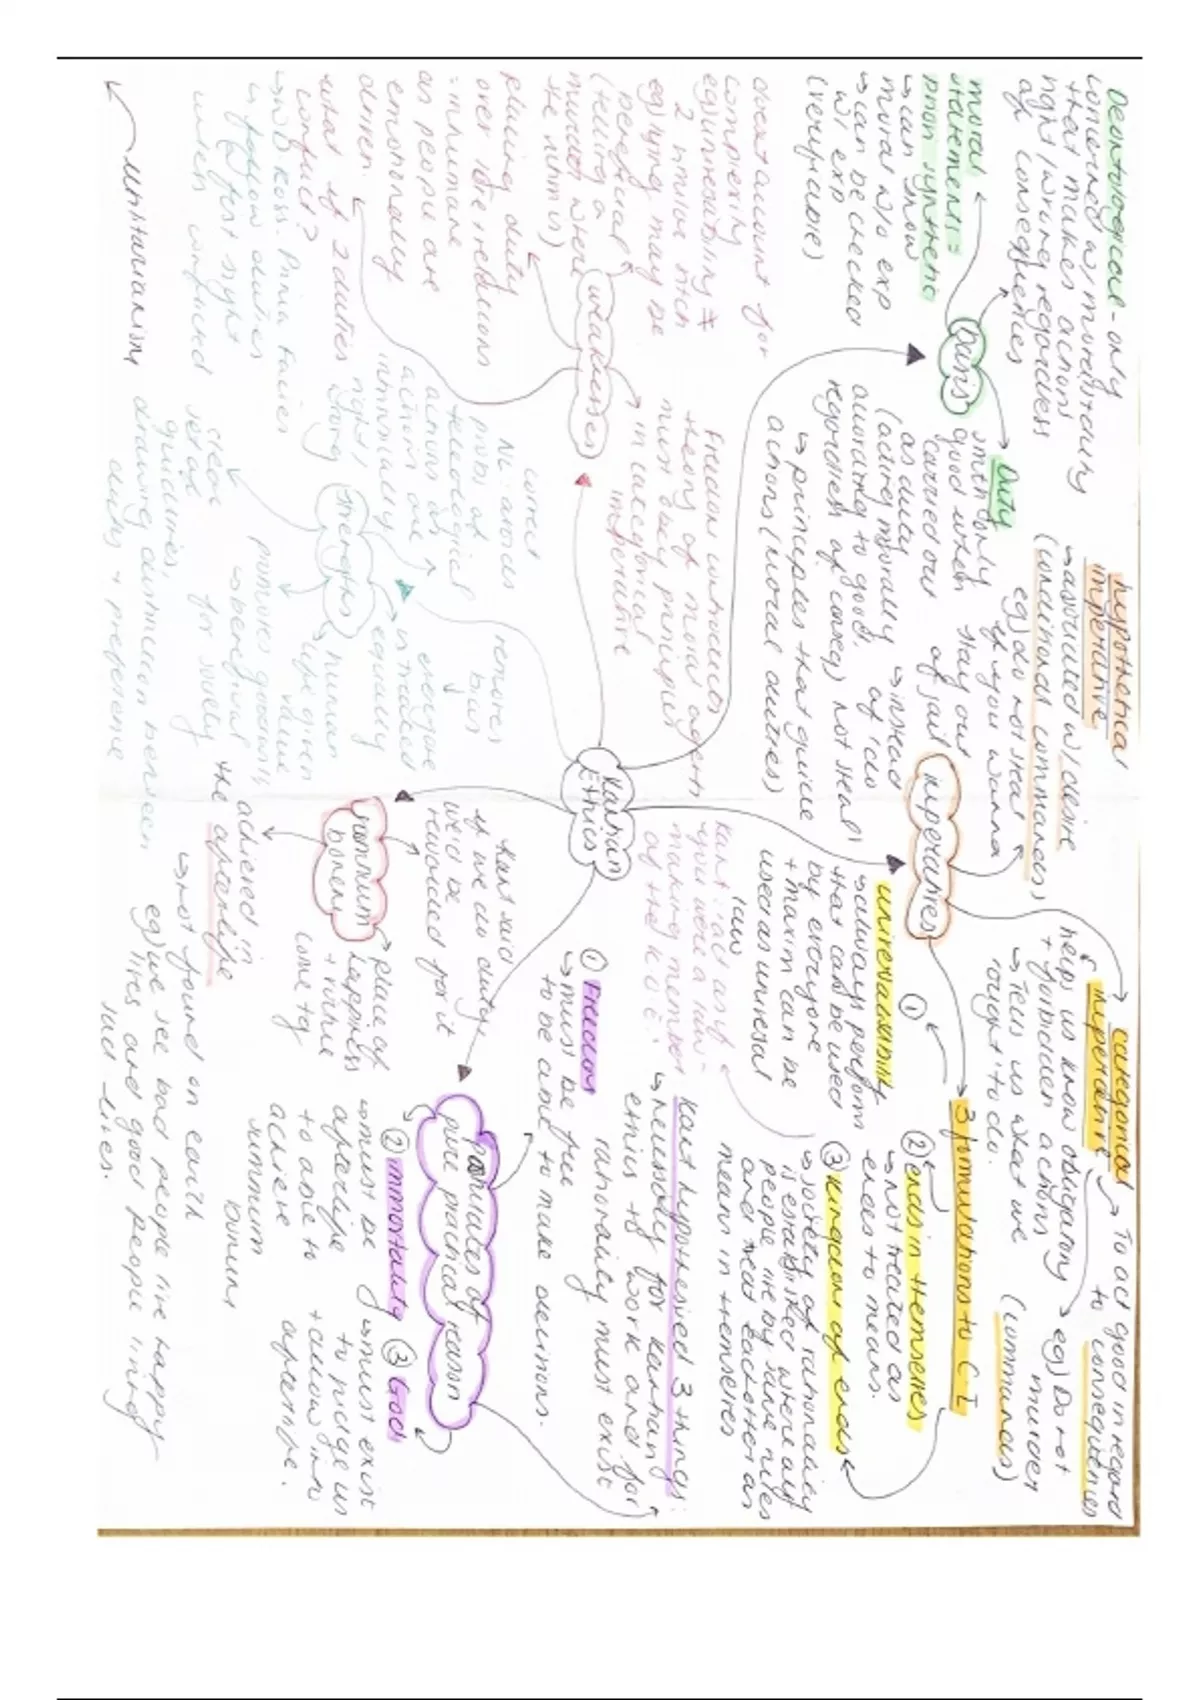 Deontological - only
concerned w/ morality
that makes actions
right/wrong regardless
of consequences
moral
statements =
priori synthetic
↳ can know
moral w/o exp
↳ can be checked
w/ exp
(verifiable)
Basis
Duty
smth only
good when
carried out
as duty
(acting morally
according to good,
regardless of conseq)
↳ instead
of 'I do
not steal'
↳ principles that guide
actions (moral duties)
hypothetical
imperative
↳ associated w/ desire
(conditional commands)
eg) do not steal
if you wanna
stay out
of jail
imperatives
categorical
imperative
helps us know obligatory
+ forbidden actions
↳ Tells us what we
'ought' to do.
To act good in regard
to consequences
eg) Do not
murder
(commands)
3 formulations to C.I
①
universalisability
↳ always perform
that can be used
by everyone
+ maxim can be
used as universal
law
② ends in themselves
↳ not treated as
ends to means.
③ kingdom of ends
↳ society of rationality
is established where all
people live by same rules
and treat eachother as
means in themselves
Kant: 'act as if
you were a law-
making member
of the k.o.E.'
Kantian
Ethics
weaknesses
doesnt account for
complexity
2
eg) lying may be
beneficial
(telling a
murderer where
the victim is)
placing duty
over
: inhumane
as people are
emotionally
driven.
what if 2 duties
conflict?
↳ W.D Ross: Prima Facies
↳ follow duties
at first sight
when conflicted
Freedom contradicts
theory of moral agents
must obey principles
in categorical
imperative
Strengths
correct
NL: avoids
probs of
teleological
actions as
actions are
intrinsically
right/
wrong
removes
bias
everyone
is treated
equally
human
life given
value
promotes goodwill
↳ beneficial
for society
clear
set of
guidelines,
utilitarianism
drawing distinction between
duty + preference
summum
bonum
Kant said
if we do duty,
we'd be
rewarded for it
place of
happiness
+ virtue
come tg
achieved in
the afterlife
↳ not found on earth
eg) we see bad people live happy
lives and good people living
sad lives.
postulates of
pure practical reason
Kant hypothesised 3 things:
↳ necessary for kantian
ethics to work and for
rationality must exist
① Freedom
↳ must be free
to be able to make decisions.
② immortality
↳ must be
afterlife
to able to
achieve
summum
bonum
③ God
↳ must exist
to judge us
+ allow into
afterlife.